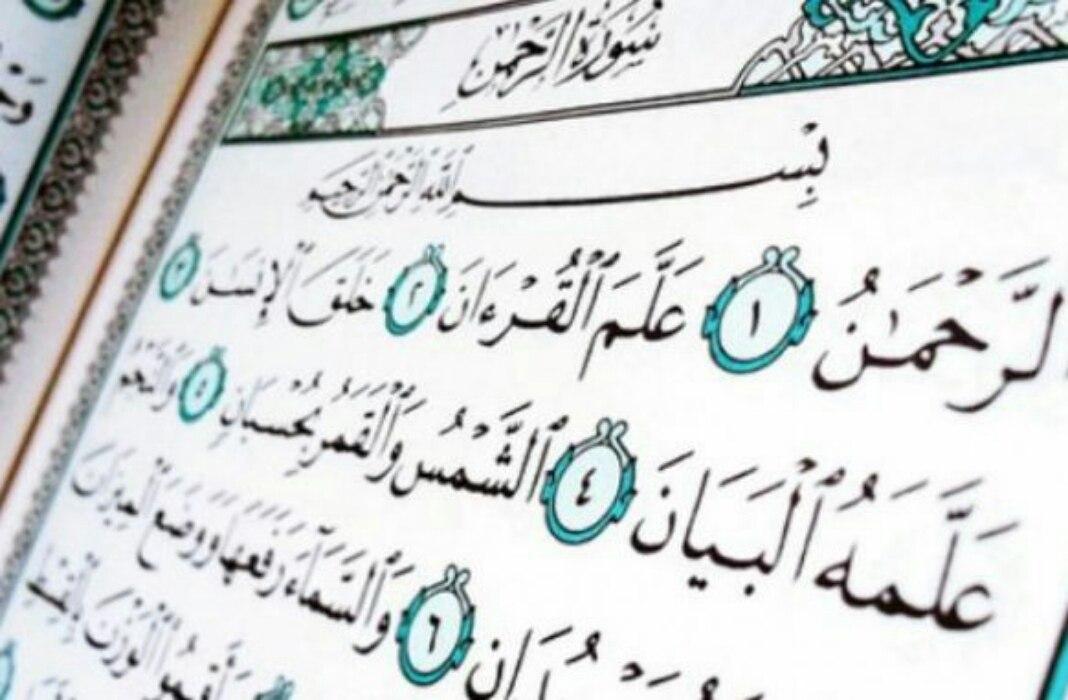 سُورَةُ الرَّحْمَٰن
بِسْمِ اللَّهِ الرَّحْمَٰنِ الرَّحِيمِ
الرَّحْمَٰنُ ١ عَلَّمَ ٱلْقُرْءَانَ ٢ خَلَقَ ٱلْإِنسَٰنَ ٣
عَلَّمَهُ ٱلْبَيَانَ ٤ ٱلشَّمْسُ وَٱلْقَمَرُ بِحُسْبَانٍ ٥ وَٱلنَّجْمُ
٦ وَٱلسَّمَآءَ رَفَعَهَا وَوَضَعَ ٱلْمِيزَانَ
ٱلْوَزْنَ بِٱلْقِسْطِ